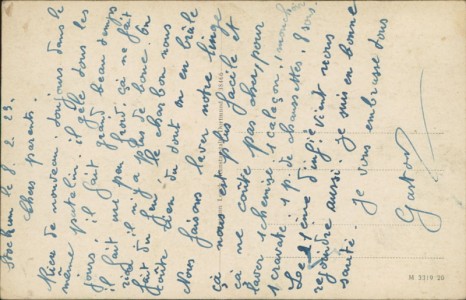 Stockum le 8. 2. 23.
Chers parents.
Rien de nouveau toujours dans le
même patelin. il gèle tous les
jours. il fait grand beau temps
il fait un peu froid. çà ne fait
rien il n'y a plus de boue. on
fait du feu le charbon nous
coûte rien du tout on en brûle
Nous faisons laver notre linge
ça nous est plus facile et
ça ne coûte pas cher, pour
laver 1 chemise, 1 caleçon, 1 mouchoir
1 cravate, 1 p. de chaussettes, 8 sous.
Le 21ème d'inf. vient nous
rejoindre aussi. je suis en bonne
santé. je vous embrasse tous
Gaston
M 2319/20